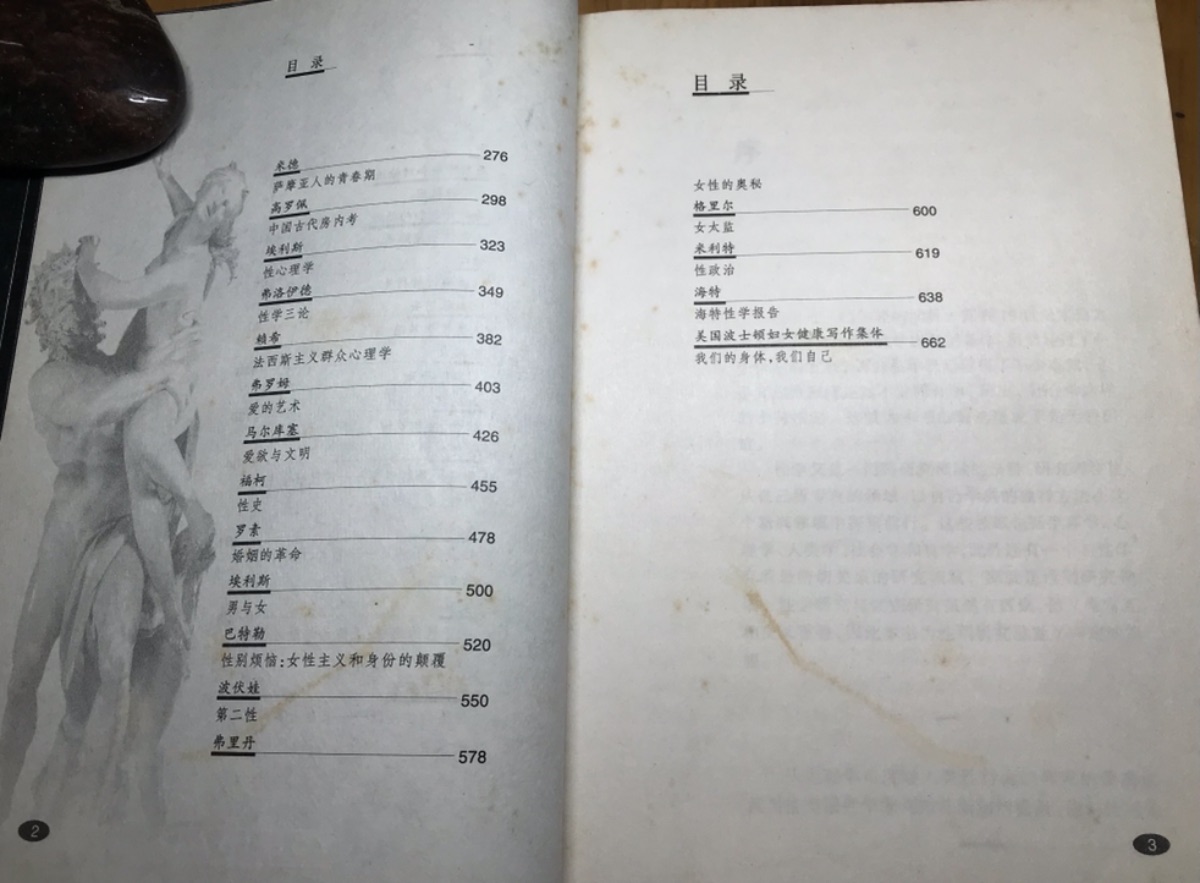 目 录
米德 276
萨摩亚人的青春期
高罗佩 298
中国古代房内考
埃利斯 323
性心理学
弗洛伊德 349
性学三论
赖希 382
法西斯主义群众心理学
弗罗姆 403
爱的艺术
马尔库塞 426
爱欲与文明
福柯 455
性史
罗素 478
婚姻的革命
埃利斯 500
男与女
巴特勒 520
性别烦恼:女性主义和身份的颠覆
波伏娃 550
第二性
弗里丹 578
2
目 录
女性的奥秘
格里尔 600
女太监
米利特 619
性政治
海特 638
海特性学报告
美国波士顿妇女健康写作集体 662
我们的身体,我们自己
3